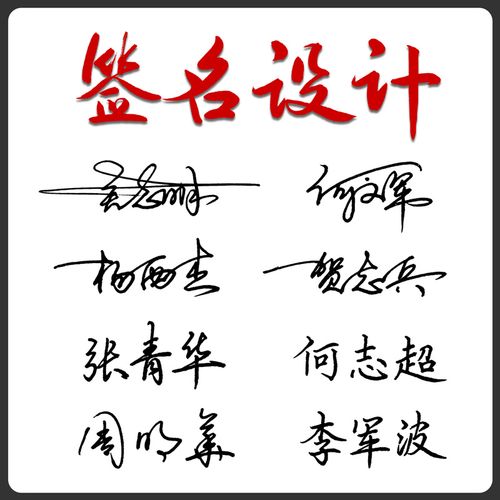 签名设计
何文军
梅西杰 贺志兵
张青华 何志超
周明华 李军波